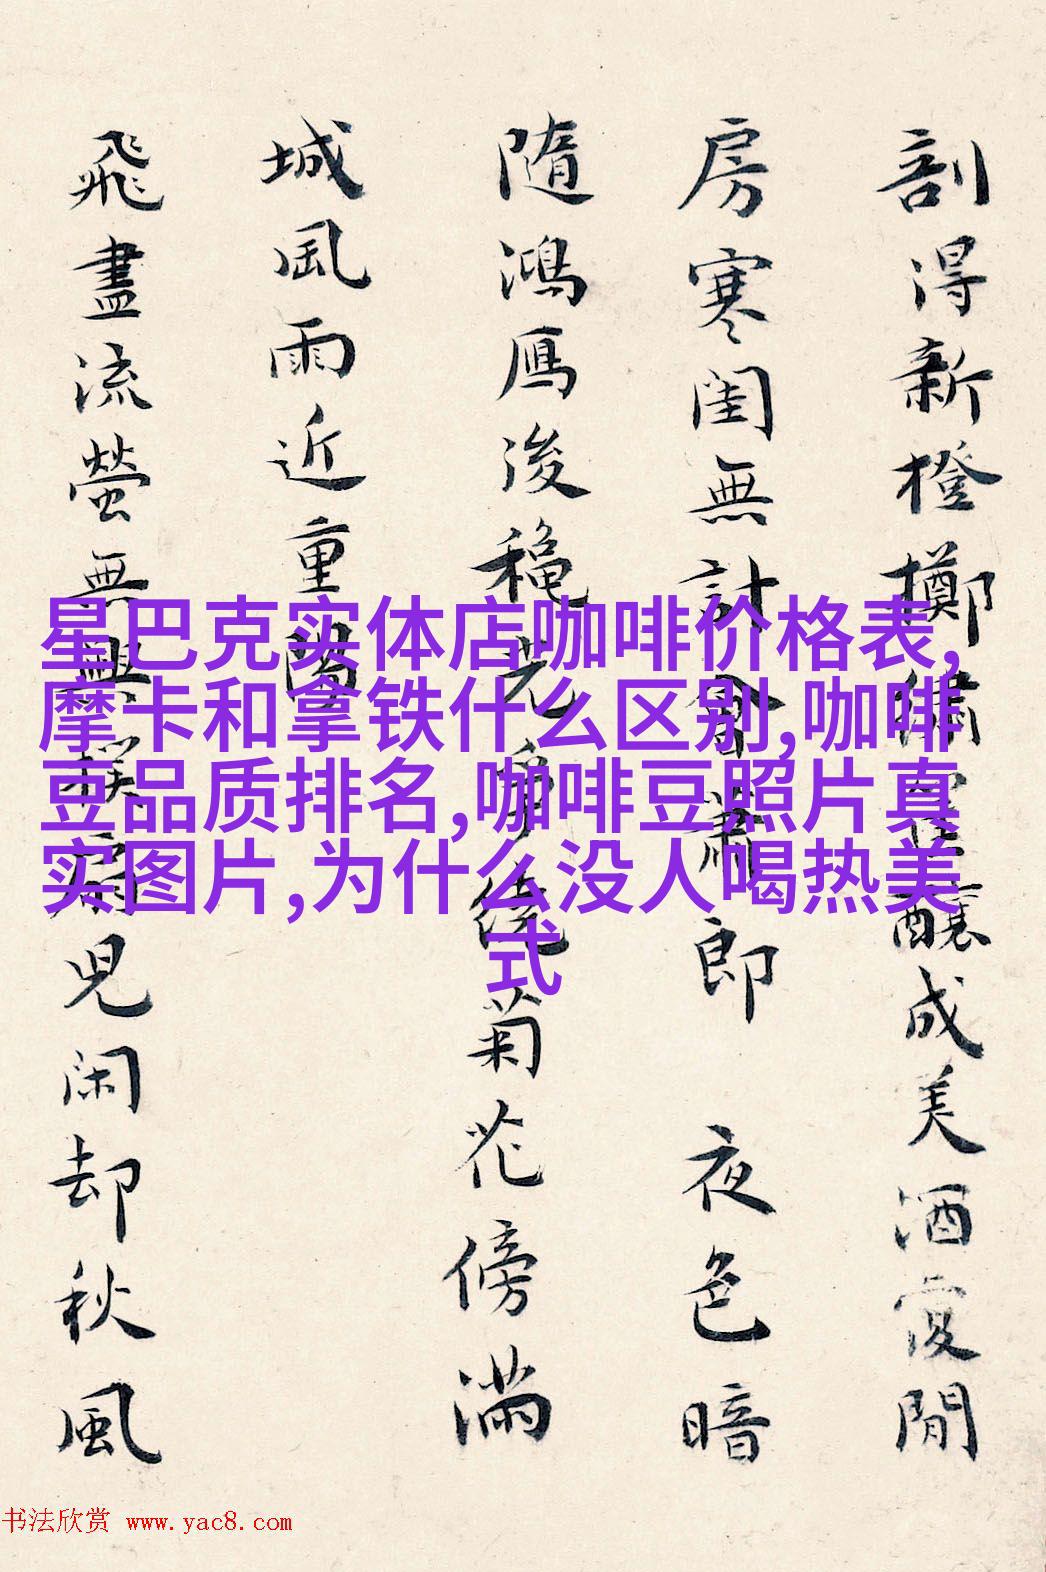 剖得新橙擲釀成美酒閒
房寒閨無計會蕭郎 夜色暗
隨鴻鴈後穐光爭繞菊花傍滿
城風雨近重陽
飛盡流螢無興撲扇兒閑却秋風
星巴克实体店咖啡价格表,
摩卡和拿铁什么区别,咖啡
豆品质排名,咖啡豆照片真
实图片,为什么没人喝热美
式
书法欣赏 www.yac8.com